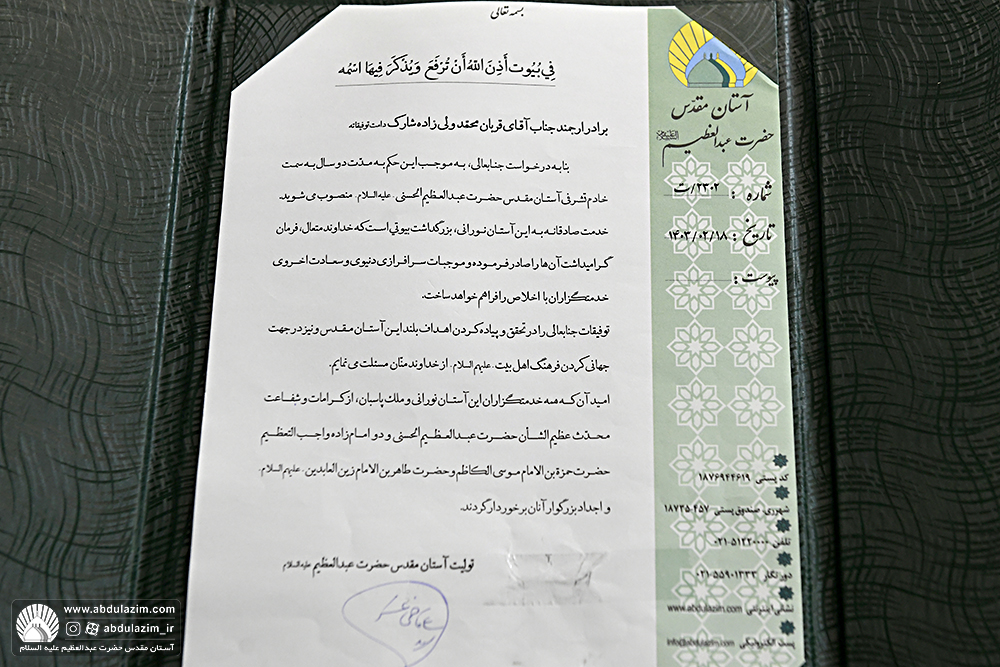 بسمه تعالی
فِي بُيُوت أَذِنَ اللهُ أَنْ تُرْفَعَ وَيُذْكَرَ فِيهَا اسْمُه
برادر ارجمند جناب آقای قربان محمد ولی زاده شارک دامت توفیقاته
بنا به درخواست جنابعالی، به موجب این حکم به مدت دو سال به سمت
خادم تشرفی آستان مقدس حضرت عبدالعظیم الحسنی علیه السلام منصوب می شوید.
خدمت صادقانه به این آستان نورانی، بزرگداشت بیوتی است که خداوند متعال، فرمان
گرامیداشت آن ها را صادر فرموده و موجبات سرافرازی دنیوی و سعادت اخروی
خدمتگزاران با اخلاص را فراهم خواهد ساخت.
توفیقات جنابعالی را در تحقق و پیاده کردن اهداف بلند این آستان مقدس و نیز در جهت
جهانی کردن فرهنگ اهل بیت علیهم السلام از خداوند منّان مسئلت می نمایم.
امید آن که همه خدمتگزاران این آستان نورانی و ملک پاسبان، از کرامات و شفاعت
محدّث عظیم الشأن حضرت عبدالعظیم الحسنی و دو امام زاده واجب التعظیم
حضرت حمزة بن الامام موسی الکاظم و حضرت طاهر بن الامام زین العابدین علیهم السلام
و اجداد بزرگوار آنان برخوردار گردند.
تولیت آستان مقدس حضرت عبدالعظیم علیه السلام
آستان مقدس
حضرت عبدالعظیم
شماره : ۲۳۰۲/ت
تاریخ : ۱۴۰۳/۰۲/۱۸
پیوست :
کد پستی ۱۸۷۶۹۴۴۶۱۹
شهرری. صندوق پستی ۴۵۷-۱۸۷۳۵
تلفن ۵۱۲۲۰۰۰۰-۰۲۱
دورنگار ۵۵۹۰۱۳۳۳-۰۲۱
نشانی اینترنتی www.abdulazim.com
پست الکترونیکی info@abdulazim.com
www.abdulazim.com
abdulazim_ir
آستان مقدس حضرت عبدالعظیم علیه السلام